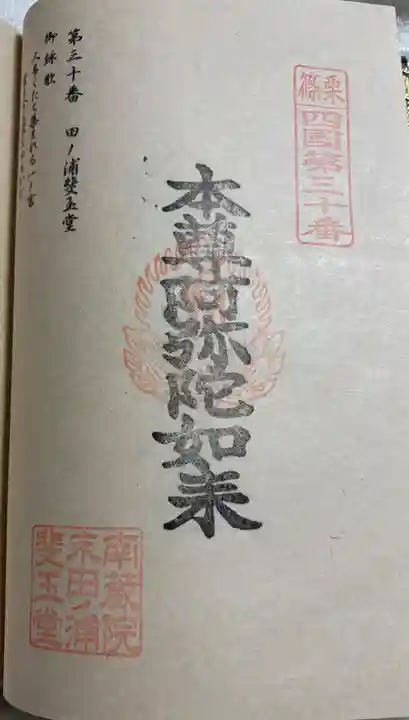 篠栗
四国第三十番
本尊阿弥陀如来
南蔵院
末田ノ浦
斐玉堂
第三十番 田ノ浦斐玉堂
御詠歌